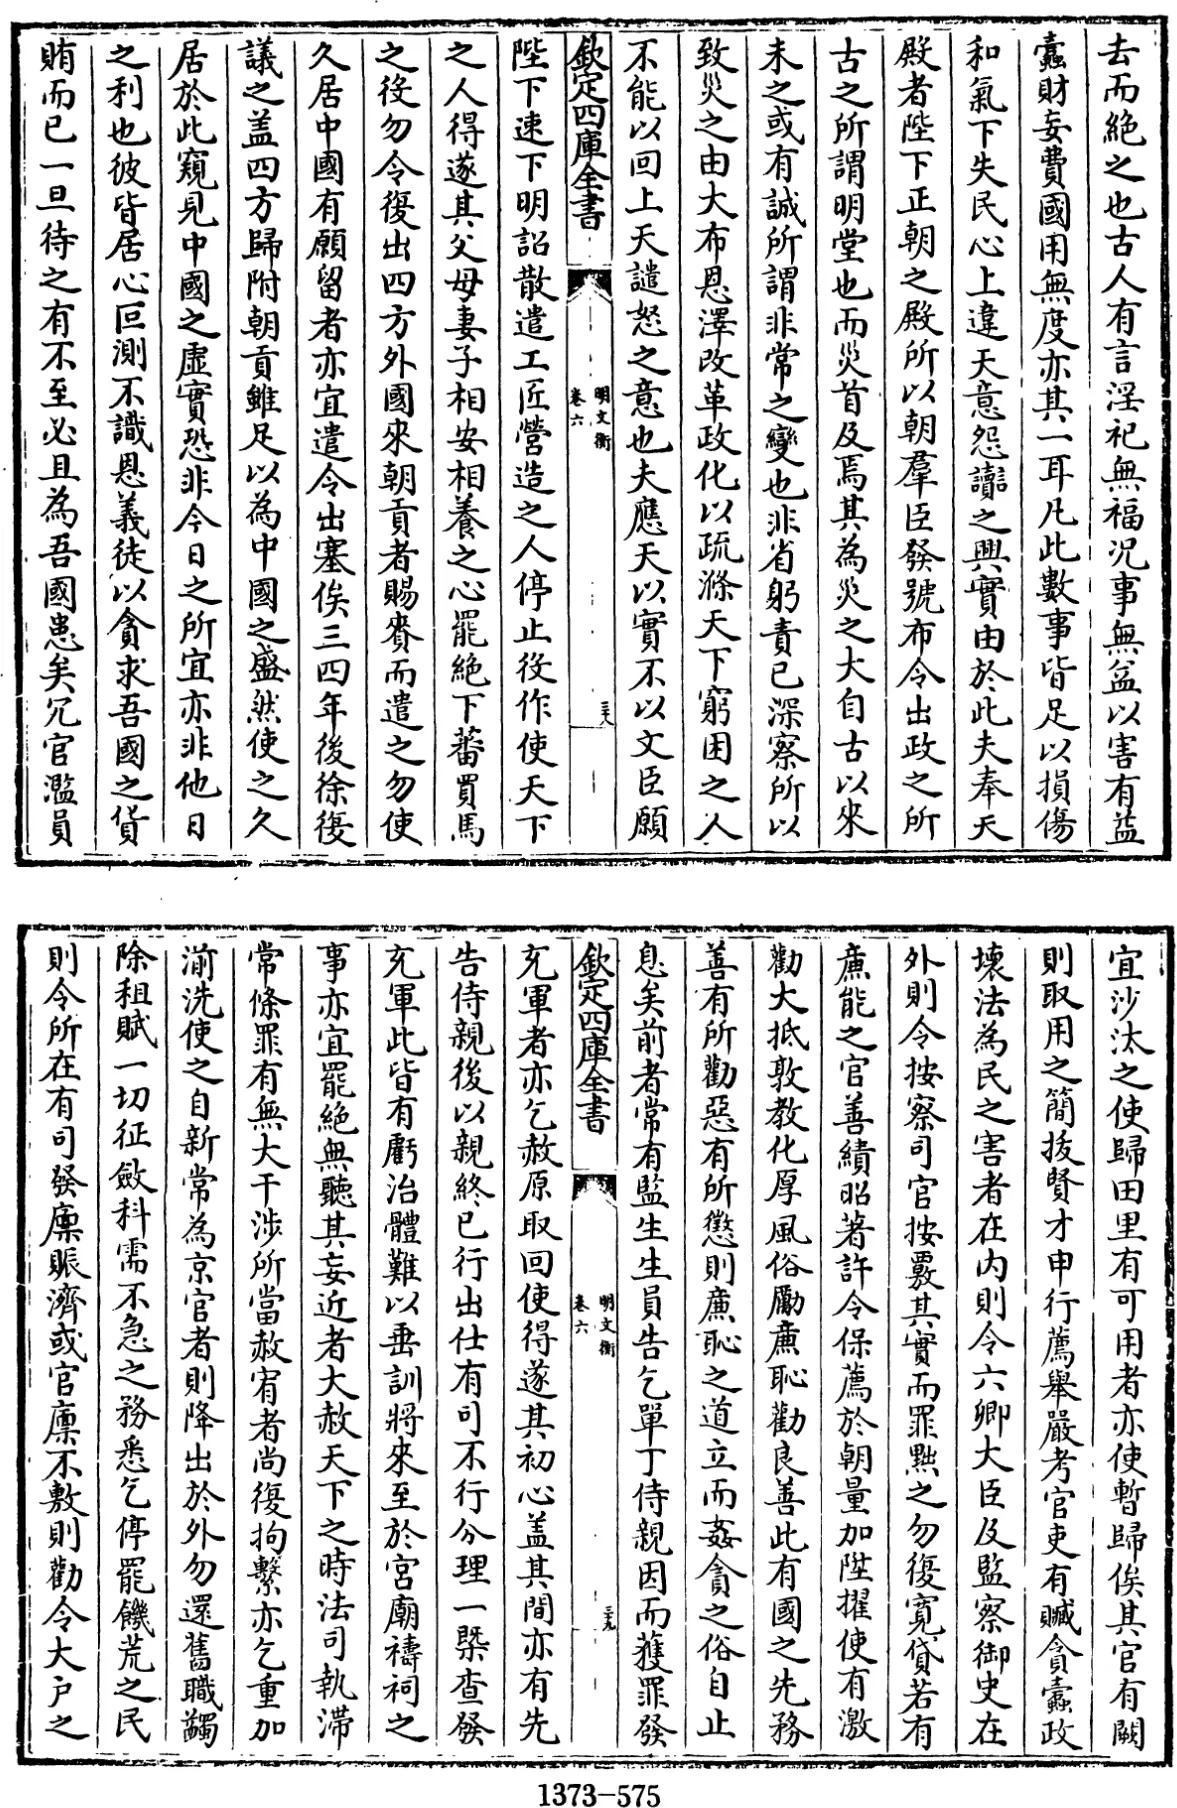 去而絶之也古人有言淫祀無福况事無益以害有益
蠹財妄費國用無度亦其一耳凡此數事皆足以損傷
和氣下失民心上違天意怨讟之興實由於此夫奉天
殿者陛下正朝之殿所以朝羣臣發號布令出政之所
古之所謂明堂也而災首及焉其為災之大自古以來
未之或有誠所謂非常之變也非省躬責已深察所以
致災之由大布恩澤改革政化以疏滌天下窮困之人
不能以回上天譴怒之意也夫應天以實不以文臣願
欽定四庫全書
明文衡
卷六
三十八
陛下速下明詔散遣工匠營造之人停止役作使天下
之人得遂其父母妻子相安相養之心罷絶下蕃買馬
之役勿令復出四方外國來朝貢者賜賚而遣之勿使
久居中國有願留者亦宜遣令出塞俟三四年後徐復
議之盖四方歸附朝貢雖足以為中國之盛然使之久
居於此窺見中國之虛實恐非今日之所宜亦非他日
之利也彼皆居心叵測不識恩義徒以貪求吾國之貨
賄而已一旦待之有不至必且為吾國患矣冗官濫員
宜沙汰之使歸田里有可用者亦使暫歸俟其官有闕
則取用之簡拔賢才申行薦舉嚴考官吏有贓貪蠹政
壊法為民之害者在内則令六卿大臣及監察御史在
外則令按察司官按覈其實而罪黜之勿復寛貸若有
亷能之官善績昭著許令保薦於朝量加陞擢使有激
勸大抵敦教化厚風俗勵亷恥勸良善此有國之先務
善有所勸惡有所懲則亷恥之道立而姦貪之俗自止
息矣前者常有監生生員告乞單丁侍親因而獲罪發
欽定四庫全書
明文衡
卷六
三十九
充軍者亦乞赦原取回使得遂其初心盖其間亦有先
告侍親後以親終已行出仕有司不行分理一槩查發
充軍此皆有虧治體難以垂訓將來至於宫廟禱祠之
事亦宜罷絶無聽其妄近者大赦天下之時法司執滯
常條罪有無大干涉所當赦宥者尚復拘繫亦乞重加
湔洗使之自新常為京官者則降出於外勿還舊職蠲
除租賦一切征斂科需不急之務悉乞停罷饑荒之民
則令所在有司發廪賑濟或官廪不敷則勸令大户之
1373-575